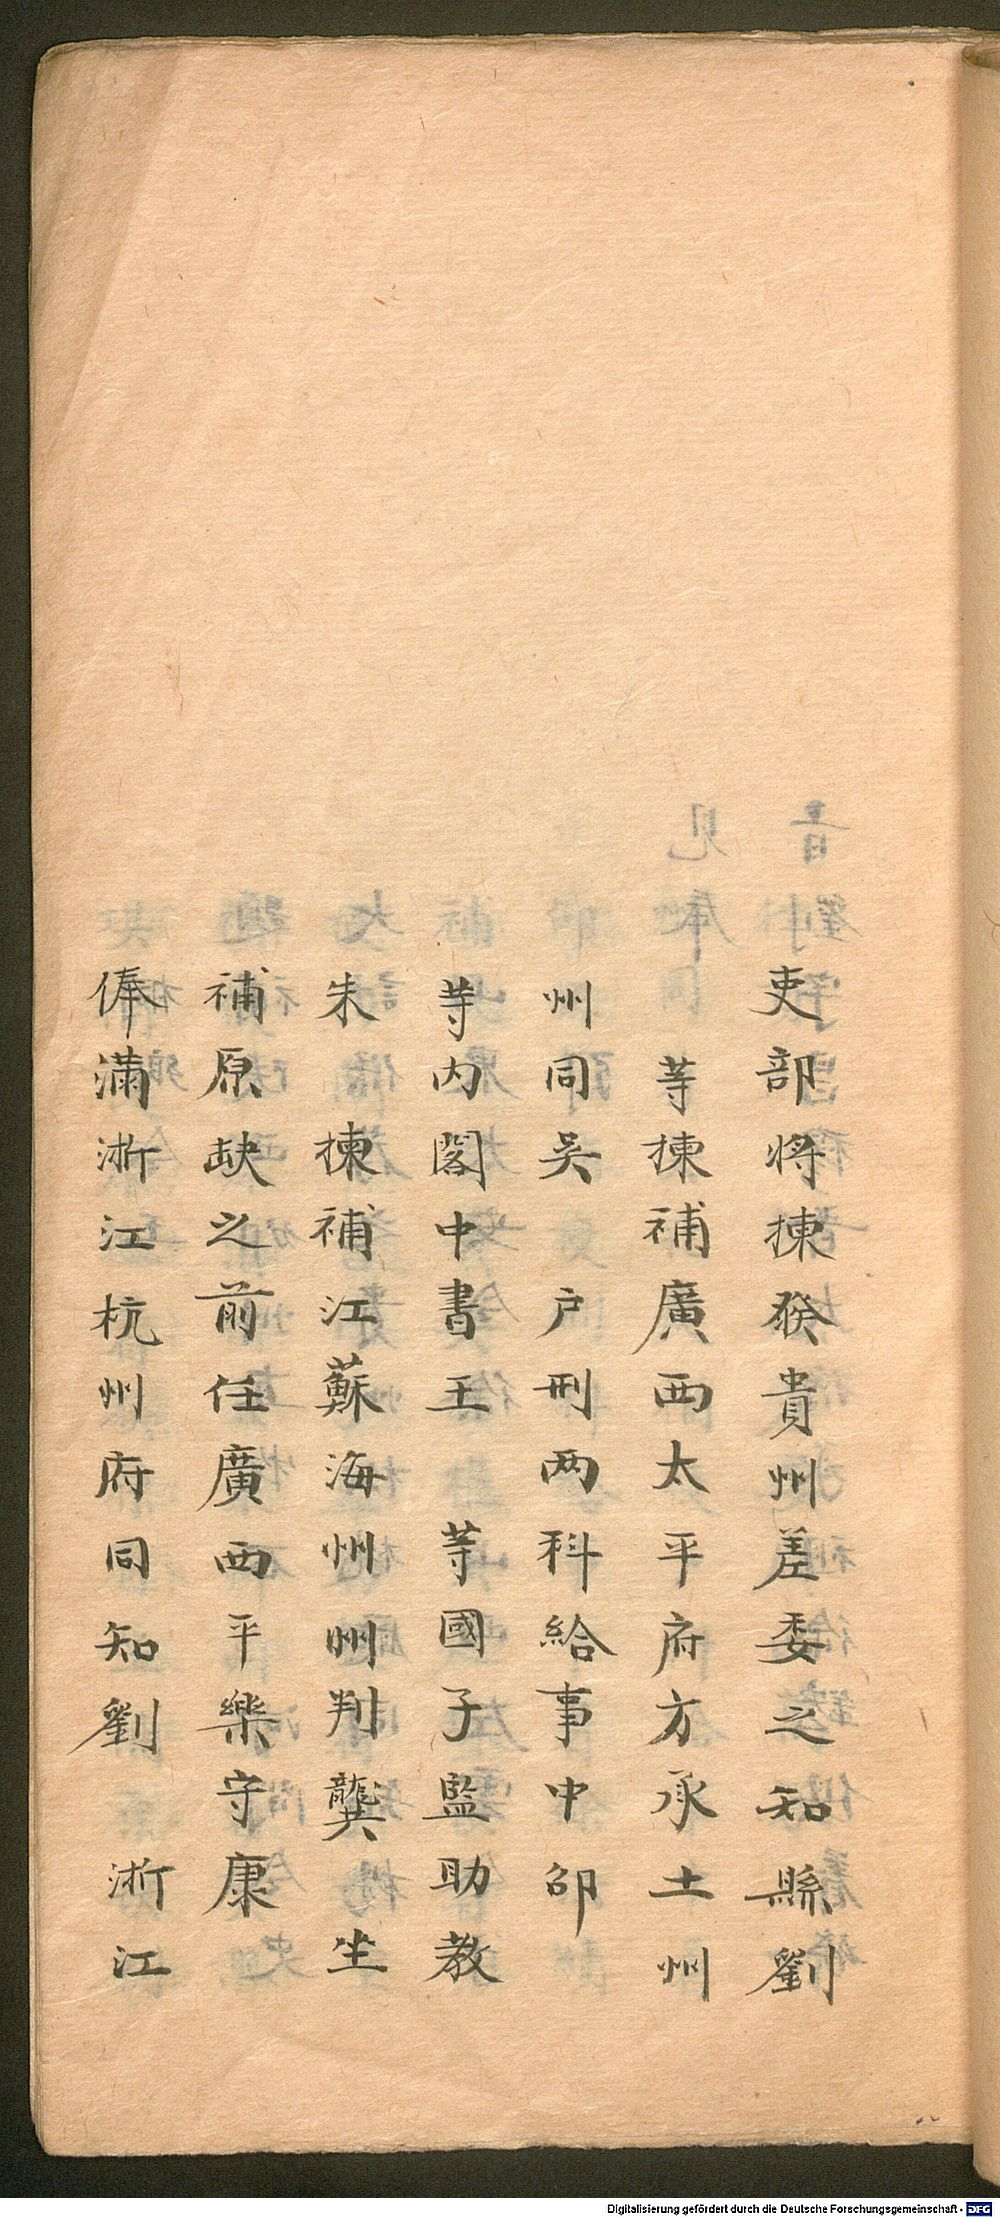 吏部將揀發貴州差委之知縣劉
等揀補廣西太平府方承土州
州同吳 户刑两科給事中邵
等内閣中書王 等國子監助教
朱 揀補江蘇海州州判龔 坐
補原缺之前任廣西平樂守康
俸滿浙江杭州府同知劉 浙江
Digitalisierung gefördert durch die Deutsche Forschungsgemeinschaft - DFG